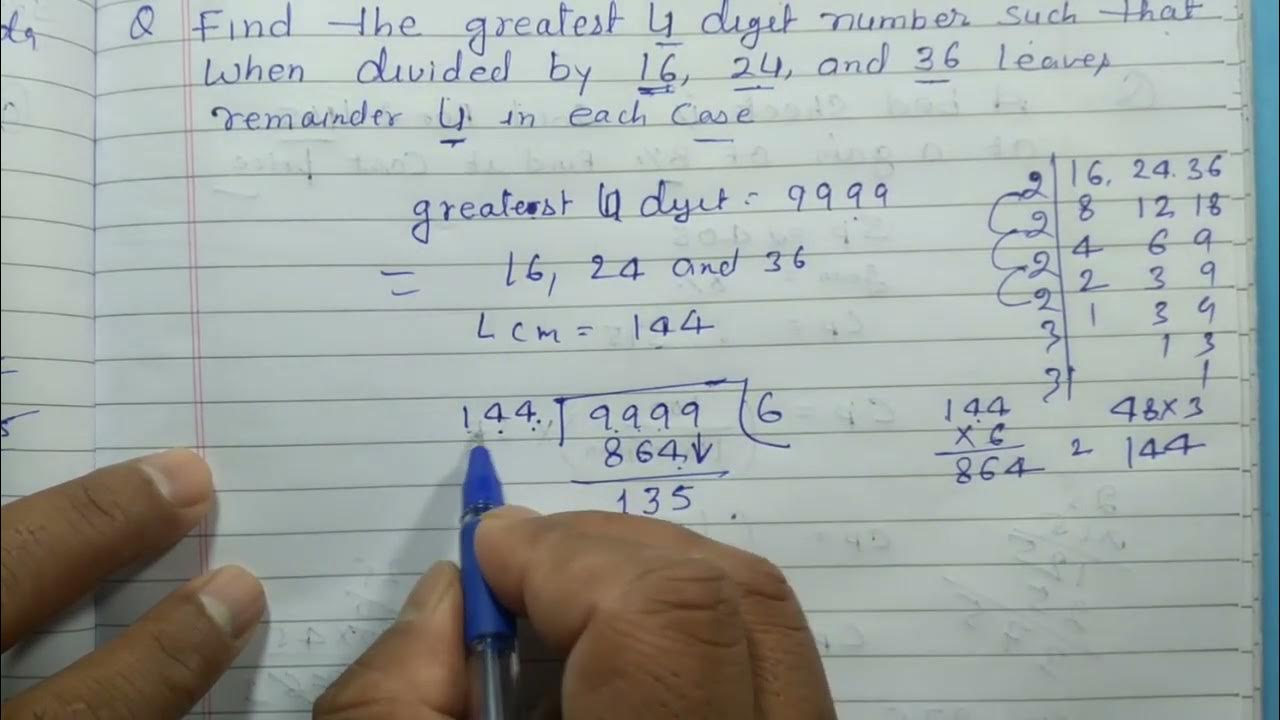 Q Find the greatest 4 diget number such that
when divided by 16, 24, and 36 leaves
remainder 4 in each case
greatest 4 dyet = 9999
= 16, 24 and 36
Lcm = 144
2 16, 24. 36
2 8 12 18
2 4 6 9
2 2 3 9
3 1 3 9
3 1 3
1
144 9999 6
864
135
144
× 6
864
48×3
= 144